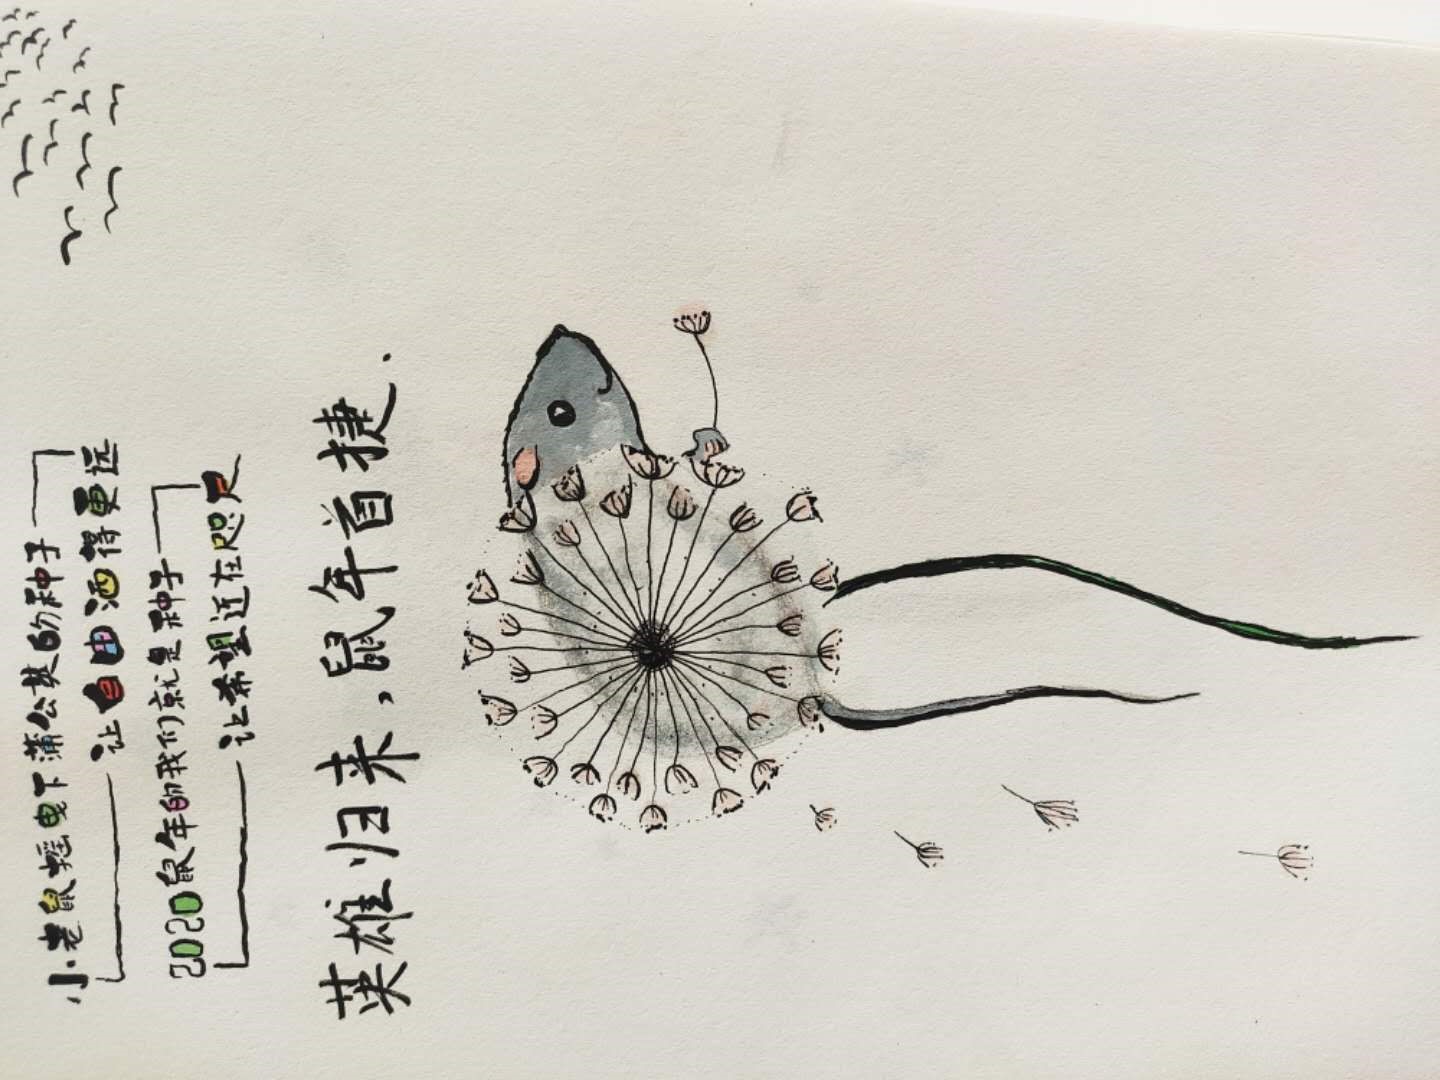 小老鼠摇曳下蒲公英的种子
让自由洒得更远
2020鼠年的我们就是种子
让希望近在咫尺
英雄归来,鼠年首捷.